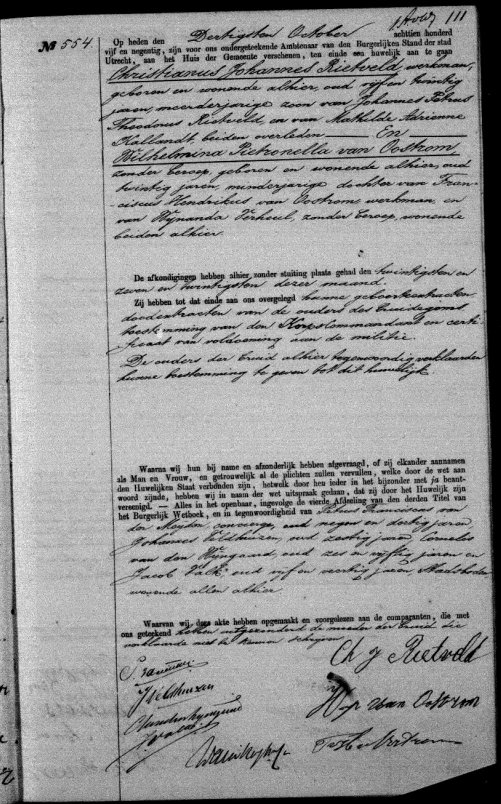 111
№ 554
Op heden den Dertigsten October achttien honderd
vijf en negentig, zijn voor ons ondergeteekende Ambtenaar van den Burgerlijken Stand der stad
Utrecht, aan het Huis der Gemeente verschenen, ten einde een huwelijk aan te gaan
Christianus Johannes Rietveld, werkman,
geboren en wonende alhier, oud vijf en twintig
jaren, meerderjarige zoon van Johannes Petrus
Theodorus Rietveld, en van Mathilda Adrienne
Hollandt, beiden overleden En
Wilhelmina Petronella van Oostrom,
zonder beroep, geboren en wonende alhier, oud
twintig jaren, minderjarige dochter van Fran-
ciscus Hendrikus van Oostrom werkman en
van Wijnanda Verheul, zonder beroep, wonende
beiden alhier
De afkondigingen hebben alhier zonder stuiting plaats gehad den twintigsten en
zeven en twintigsten dezer maand.
Zij hebben tot dat einde aan ons overgelegd hunne geboorteextracten
doodextracten van de ouders des bruidegoms
toestemming van den Korpscommandant en certi-
ficaat van voldoening aan de militie.
De ouders der bruid alhier tegenwoordig verklaarden
hunne toestemming te geven tot dit huwelijk
Waarna wij hun bij name en afzonderlijk hebben afgevraagd, of zij elkander aannamen
als Man en Vrouw, en getrouwelijk al de plichten zullen vervullen, welke door de wet aan
den Huwelijken Staat verbonden zijn, hetwelk door hen ieder in het bijzonder met ja beant-
woord zijnde, hebben wij in naam der wet uitspraak gedaan, dat zij door het Huwelijk zijn
vereenigd. — Alles in het openbaar, ingevolge de vierde Afdeeling van den derden Titel van
het Burgerlijk Wetboek, en in tegenwoordigheid van Franciscus van
der Meyden, concierge, oud negen en dertig jaren
Johannes Veldhuizen, oud zestig jaren Cornelis
van den Wijngaard oud zes en vijftig jaren en
Jacob Valk, oud vijf en veertig jaren, Stadsboden
wonende allen alhier
Waarvan wij deze akte hebben opgemaakt en voorgelezen aan de comparanten, die met
ons geteekend hebben uitgezonderd de moeder der bruid die
verklaarde niet te kunnen schrijven
Ch J Rietveld
J Veldhuizen
W P van Oostrom